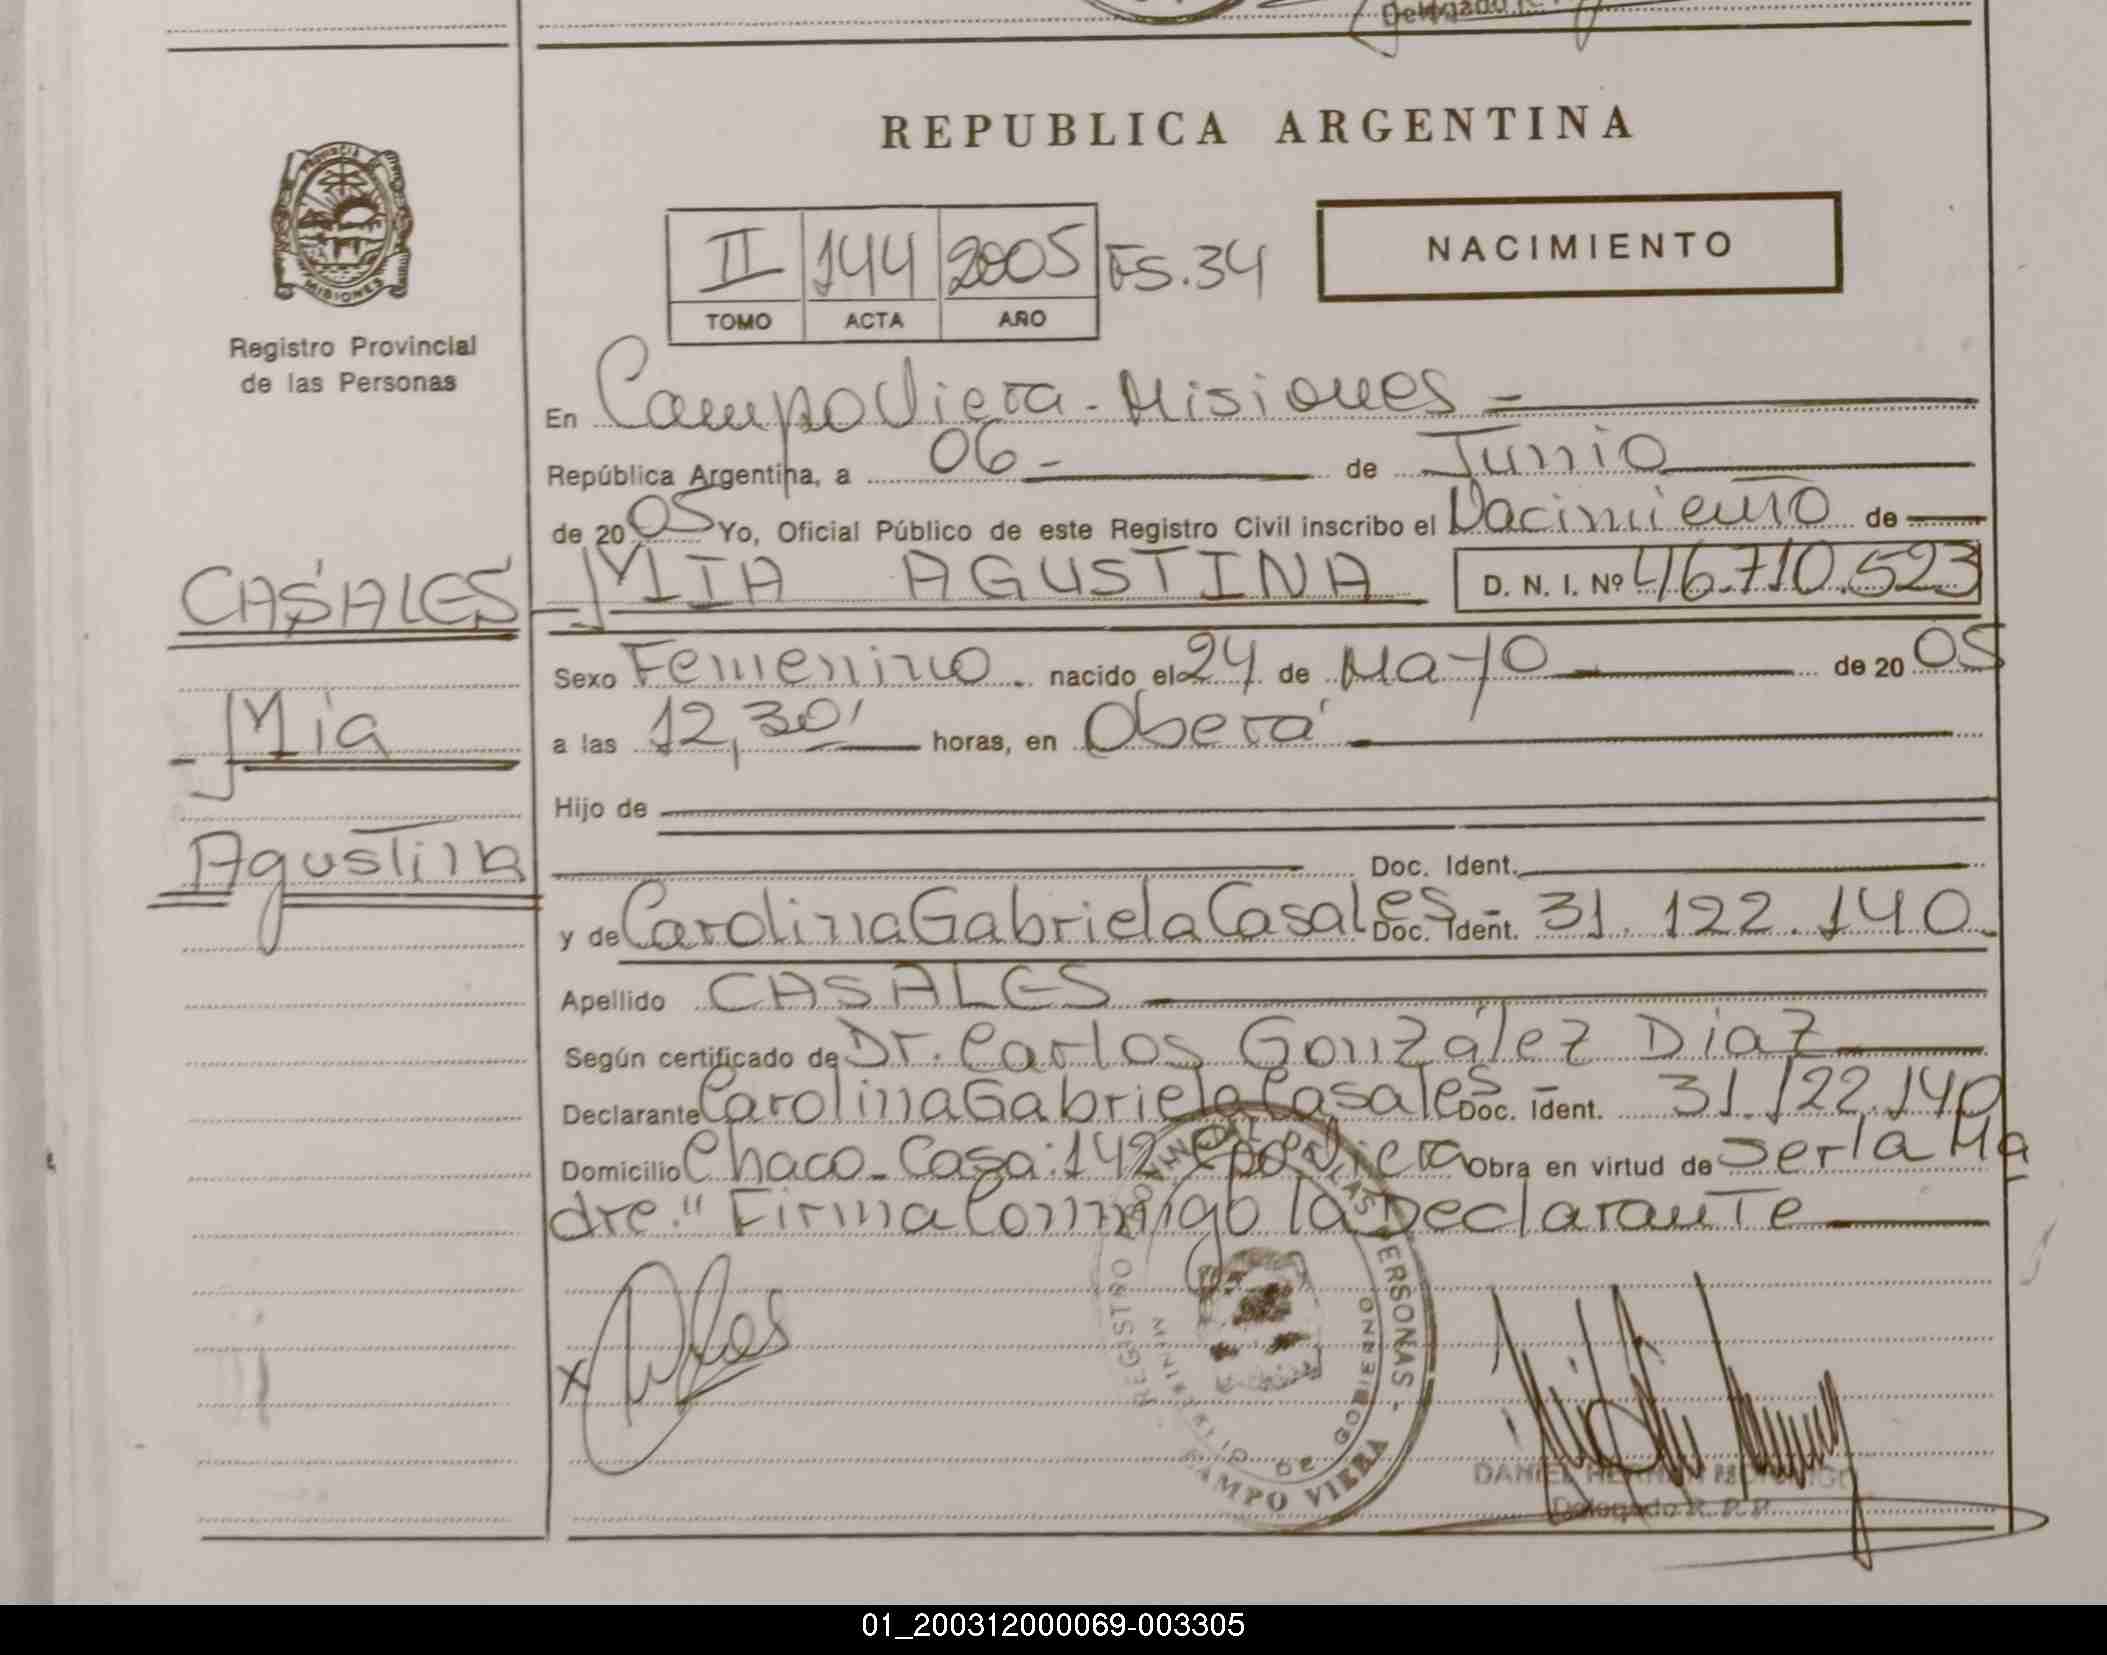 Delegado R.
REPUBLICA ARGENTINA
PROVINCIA DE
MISIONES
Registro Provincial
de las Personas
NACIMIENTO
II 144 2005 Fs.34
TOMO ACTA AÑO
En Campo Viera - Misiones -
República Argentina, a 06 - de Junio
de 2005 Yo, Oficial Público de este Registro Civil inscribo el Nacimiento de
CASALES
MIA AGUSTINA D. N. I. Nº 46.710.523
Sexo Femenino nacido el 24 de Mayo de 2005
Mia
a las 12,30' horas, en Oberá
Hijo de
Agustina
Doc. Ident.
y de Carolina Gabriela Casales - Doc. Ident. 31.122.140
Apellido CASALES
Según certificado de Dr. Carlos González Diaz
Declarante Carolina Gabriela Casales - Doc. Ident. 31.122.140
Domicilio Chaco - Casa: 142 Cpo Viera Obra en virtud de ser la Ma
dre." Firma Conmigo la Declarante
REGISTRO PROVINCIAL DE LAS PERSONAS -
MINISTERIO DE GOBIERNO
CAMPO VIERA
X
DANIEL
Delegado R. P. P.
01_200312000069-003305